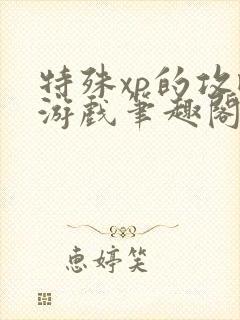 特殊xp的攻
游戏笔趣阁
惠婷笑